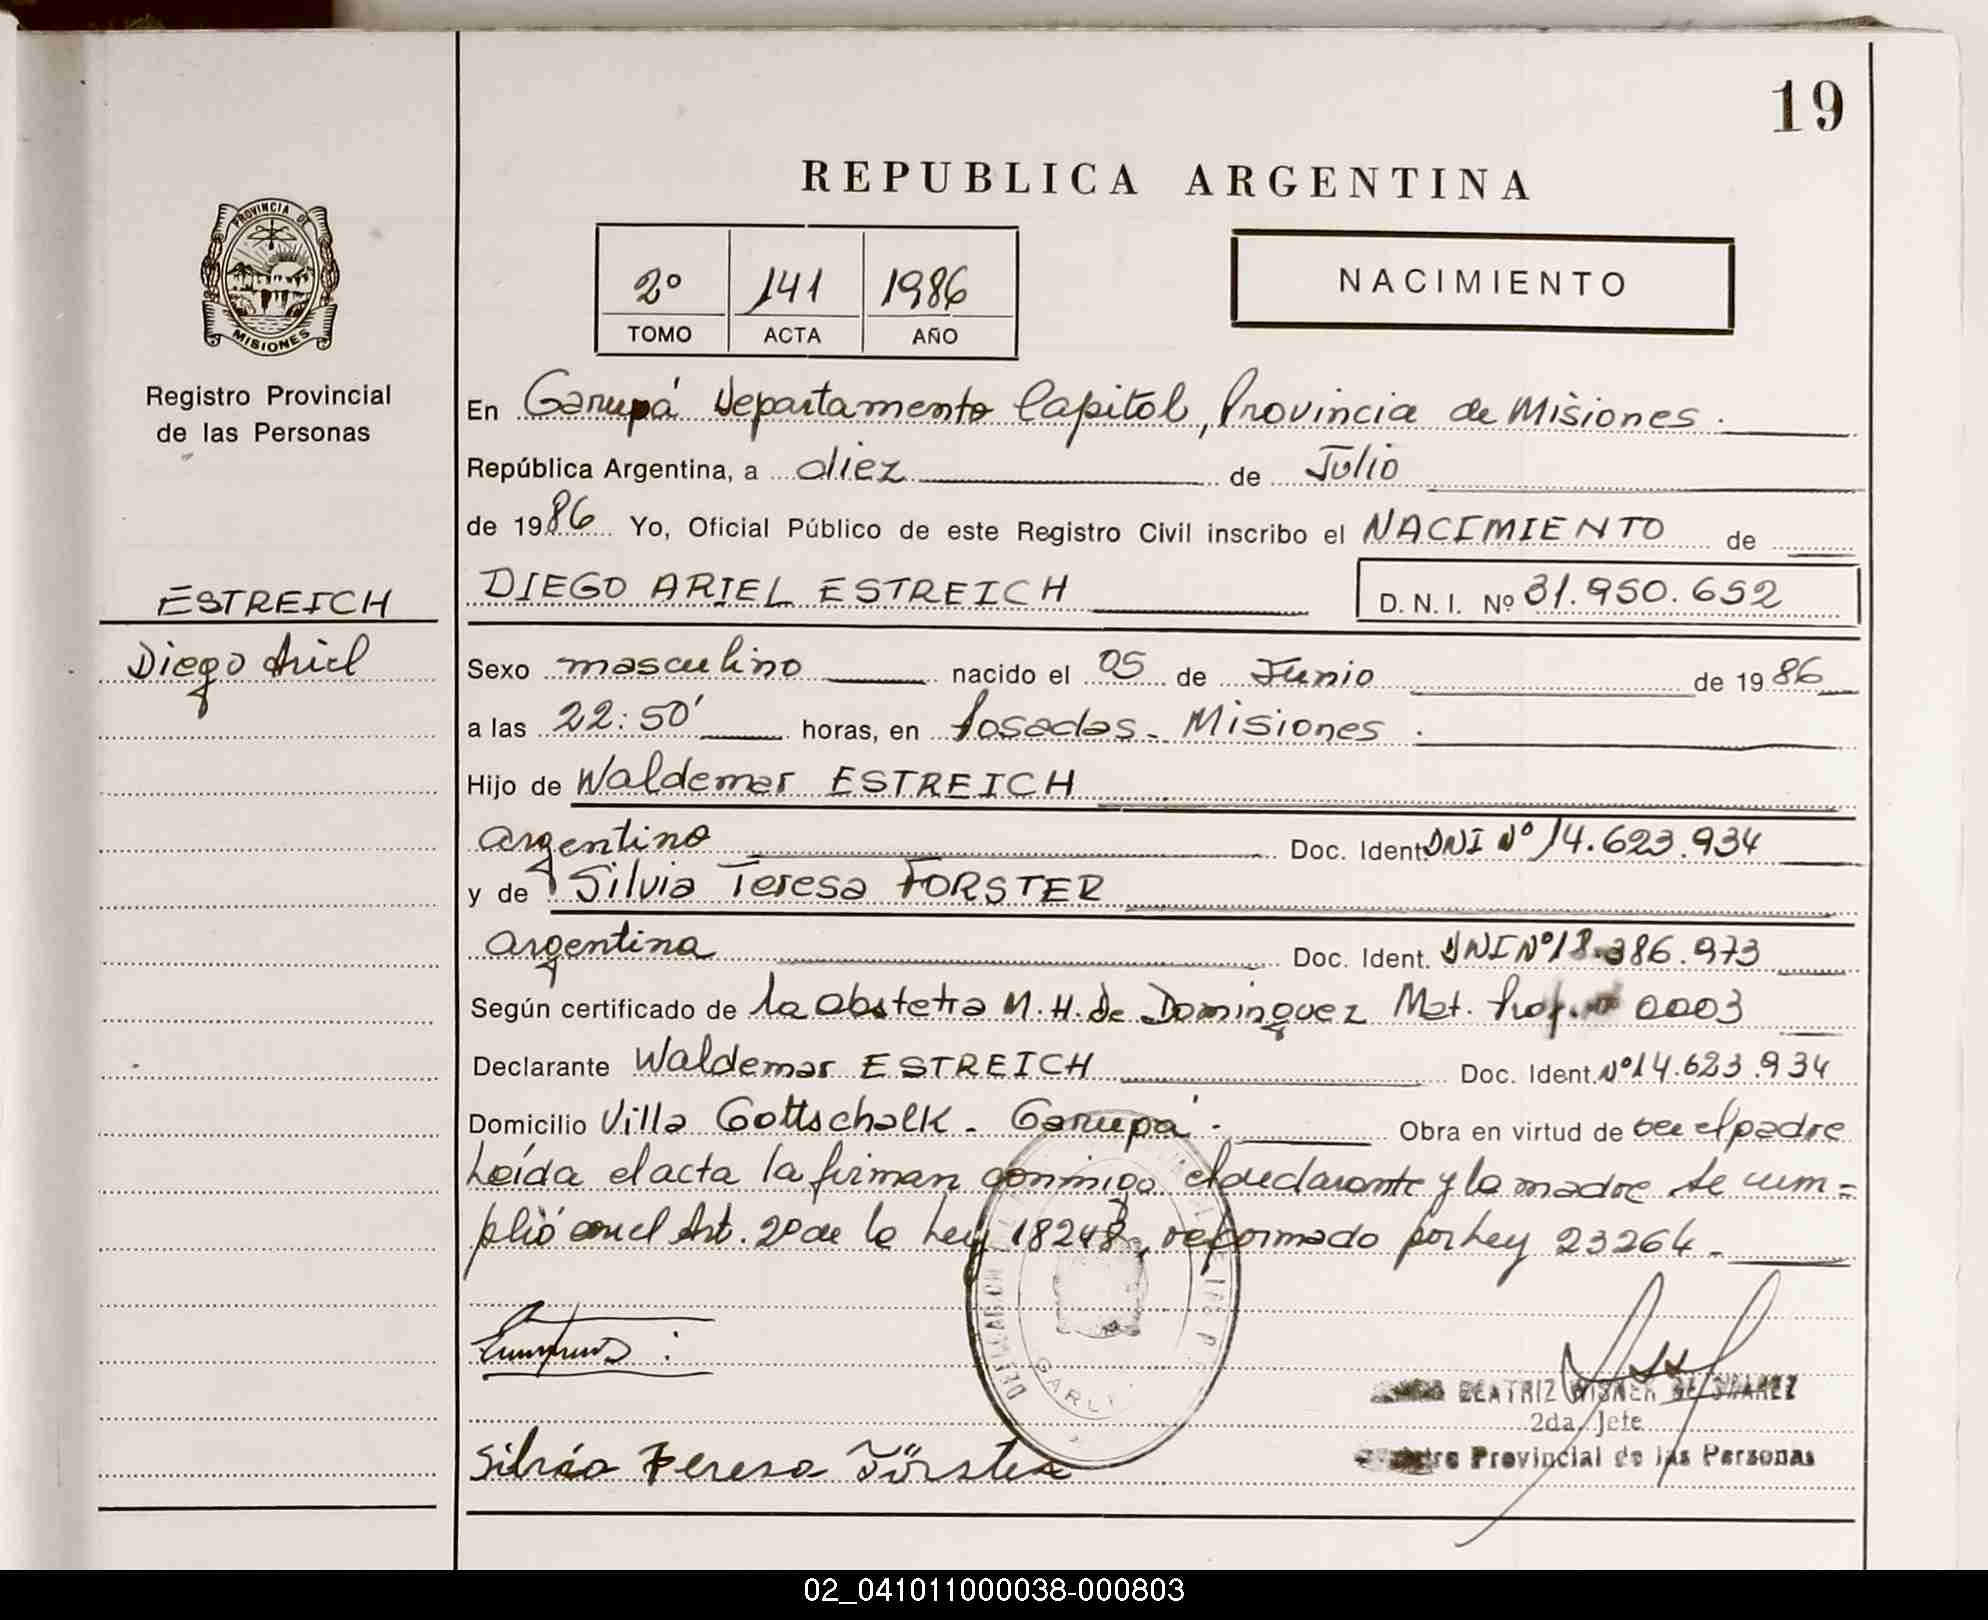 19
REPUBLICA ARGENTINA
PROVINCIA DE
MISIONES
Registro Provincial
de las Personas
2º 141 1986
TOMO ACTA AÑO
NACIMIENTO
En Garupá Departamento Capital, Provincia de Misiones.
República Argentina, a diez de Julio
de 1986 Yo, Oficial Público de este Registro Civil inscribo el NACIMIENTO de
ESTREICH
DIEGO ARIEL ESTREICH D. N. I. Nº 31.950.652
Diego Ariel
Sexo masculino nacido el 05 de Junio de 1986
a las 22:50' horas, en Posadas - Misiones.
Hijo de Waldemar ESTREICH
argentino Doc. Ident. DNI Nº 14.623.934
y de Silvia Teresa FORSTER
argentina Doc. Ident. DNI Nº 18.386.973
Según certificado de la obstetra M. H. de Dominguez Mat. Prof. 0003
Declarante Waldemar ESTREICH Doc. Ident. Nº 14.623.934
Domicilio Villa Gottschalk - Garupá. Obra en virtud de ser el padre
Leída el acta la firman conmigo el declarante y la madre se cum=
plió con el Art. 2º de la Ley 18248, reformado por Ley 23264.
BEATRIZ WISNER DE SUAREZ
2da. Jefe
Provincial de las Personas
Silvia Teresa Förster
02_041011000038-000803